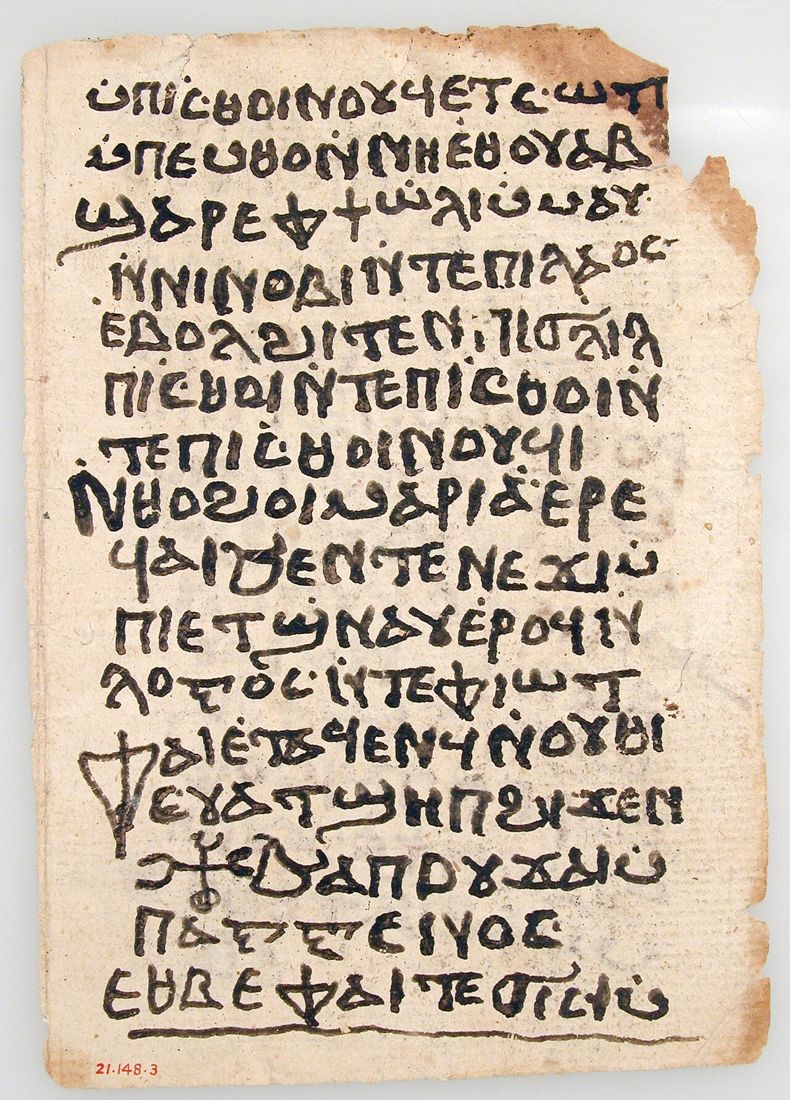 ⲙ̀ⲡⲓⲥ̀ⲑⲟⲓⲛⲟⲩϥⲉⲧⲥ·ⲱⲧⲡ
ⲙ̀ⲡⲉⲙⲑⲟⲛ̀ⲛⲏⲉ̀ⲑⲟⲩⲁⲃ
ϣⲁⲣⲉⲫϯⲱ̀ⲗⲓⲙ̀ⲙⲁⲩ
ⲛ̀ⲛⲓⲛⲟⲃⲓⲛ̀ⲧⲉⲡⲓⲗⲁⲟⲥ
ⲉⲃⲟⲗϩⲓⲧⲉⲛⲡⲓϭⲗⲓⲗ
ⲡⲓⲥ̀ⲑⲟⲓⲛ̀ⲧⲉⲡⲓⲥ̀ⲑⲟⲓⲛ̀
ⲧⲉⲡⲓⲥ̀ⲑⲟⲓⲛⲟⲩϥⲓ
ⲛ̀ⲑⲟϩⲟⲓⲙⲁⲣⲓⲁ̀ⲉⲣⲉ
ϥⲁⲓϧⲉⲛⲧⲉⲛⲉϫⲓⲙ̀
ⲡⲓⲉⲧϣⲛⲁⲩⲉ̀ⲣⲟϥⲓⲛ̀
ⲗⲟⲅⲟⲥ·ⲛ̀ⲧⲉⲫⲓⲱⲧ
ⲫⲁⲓⲉ̀ⲧⲁϥⲉⲛϥⲛ̀ⲟⲩⲑⲓ
ⲉⲩⲁⲧϣⲏⲡϩⲓϫⲉⲛ
ϧⲁⲡⲟⲩϫⲁⲓⲙ̀
ⲡⲁⲅⲅⲉⲓⲛⲟⲥ
ⲉⲑⲃⲉⲫⲁⲓⲧⲉϭⲓⲥⲓⲙ̀
21.148.3